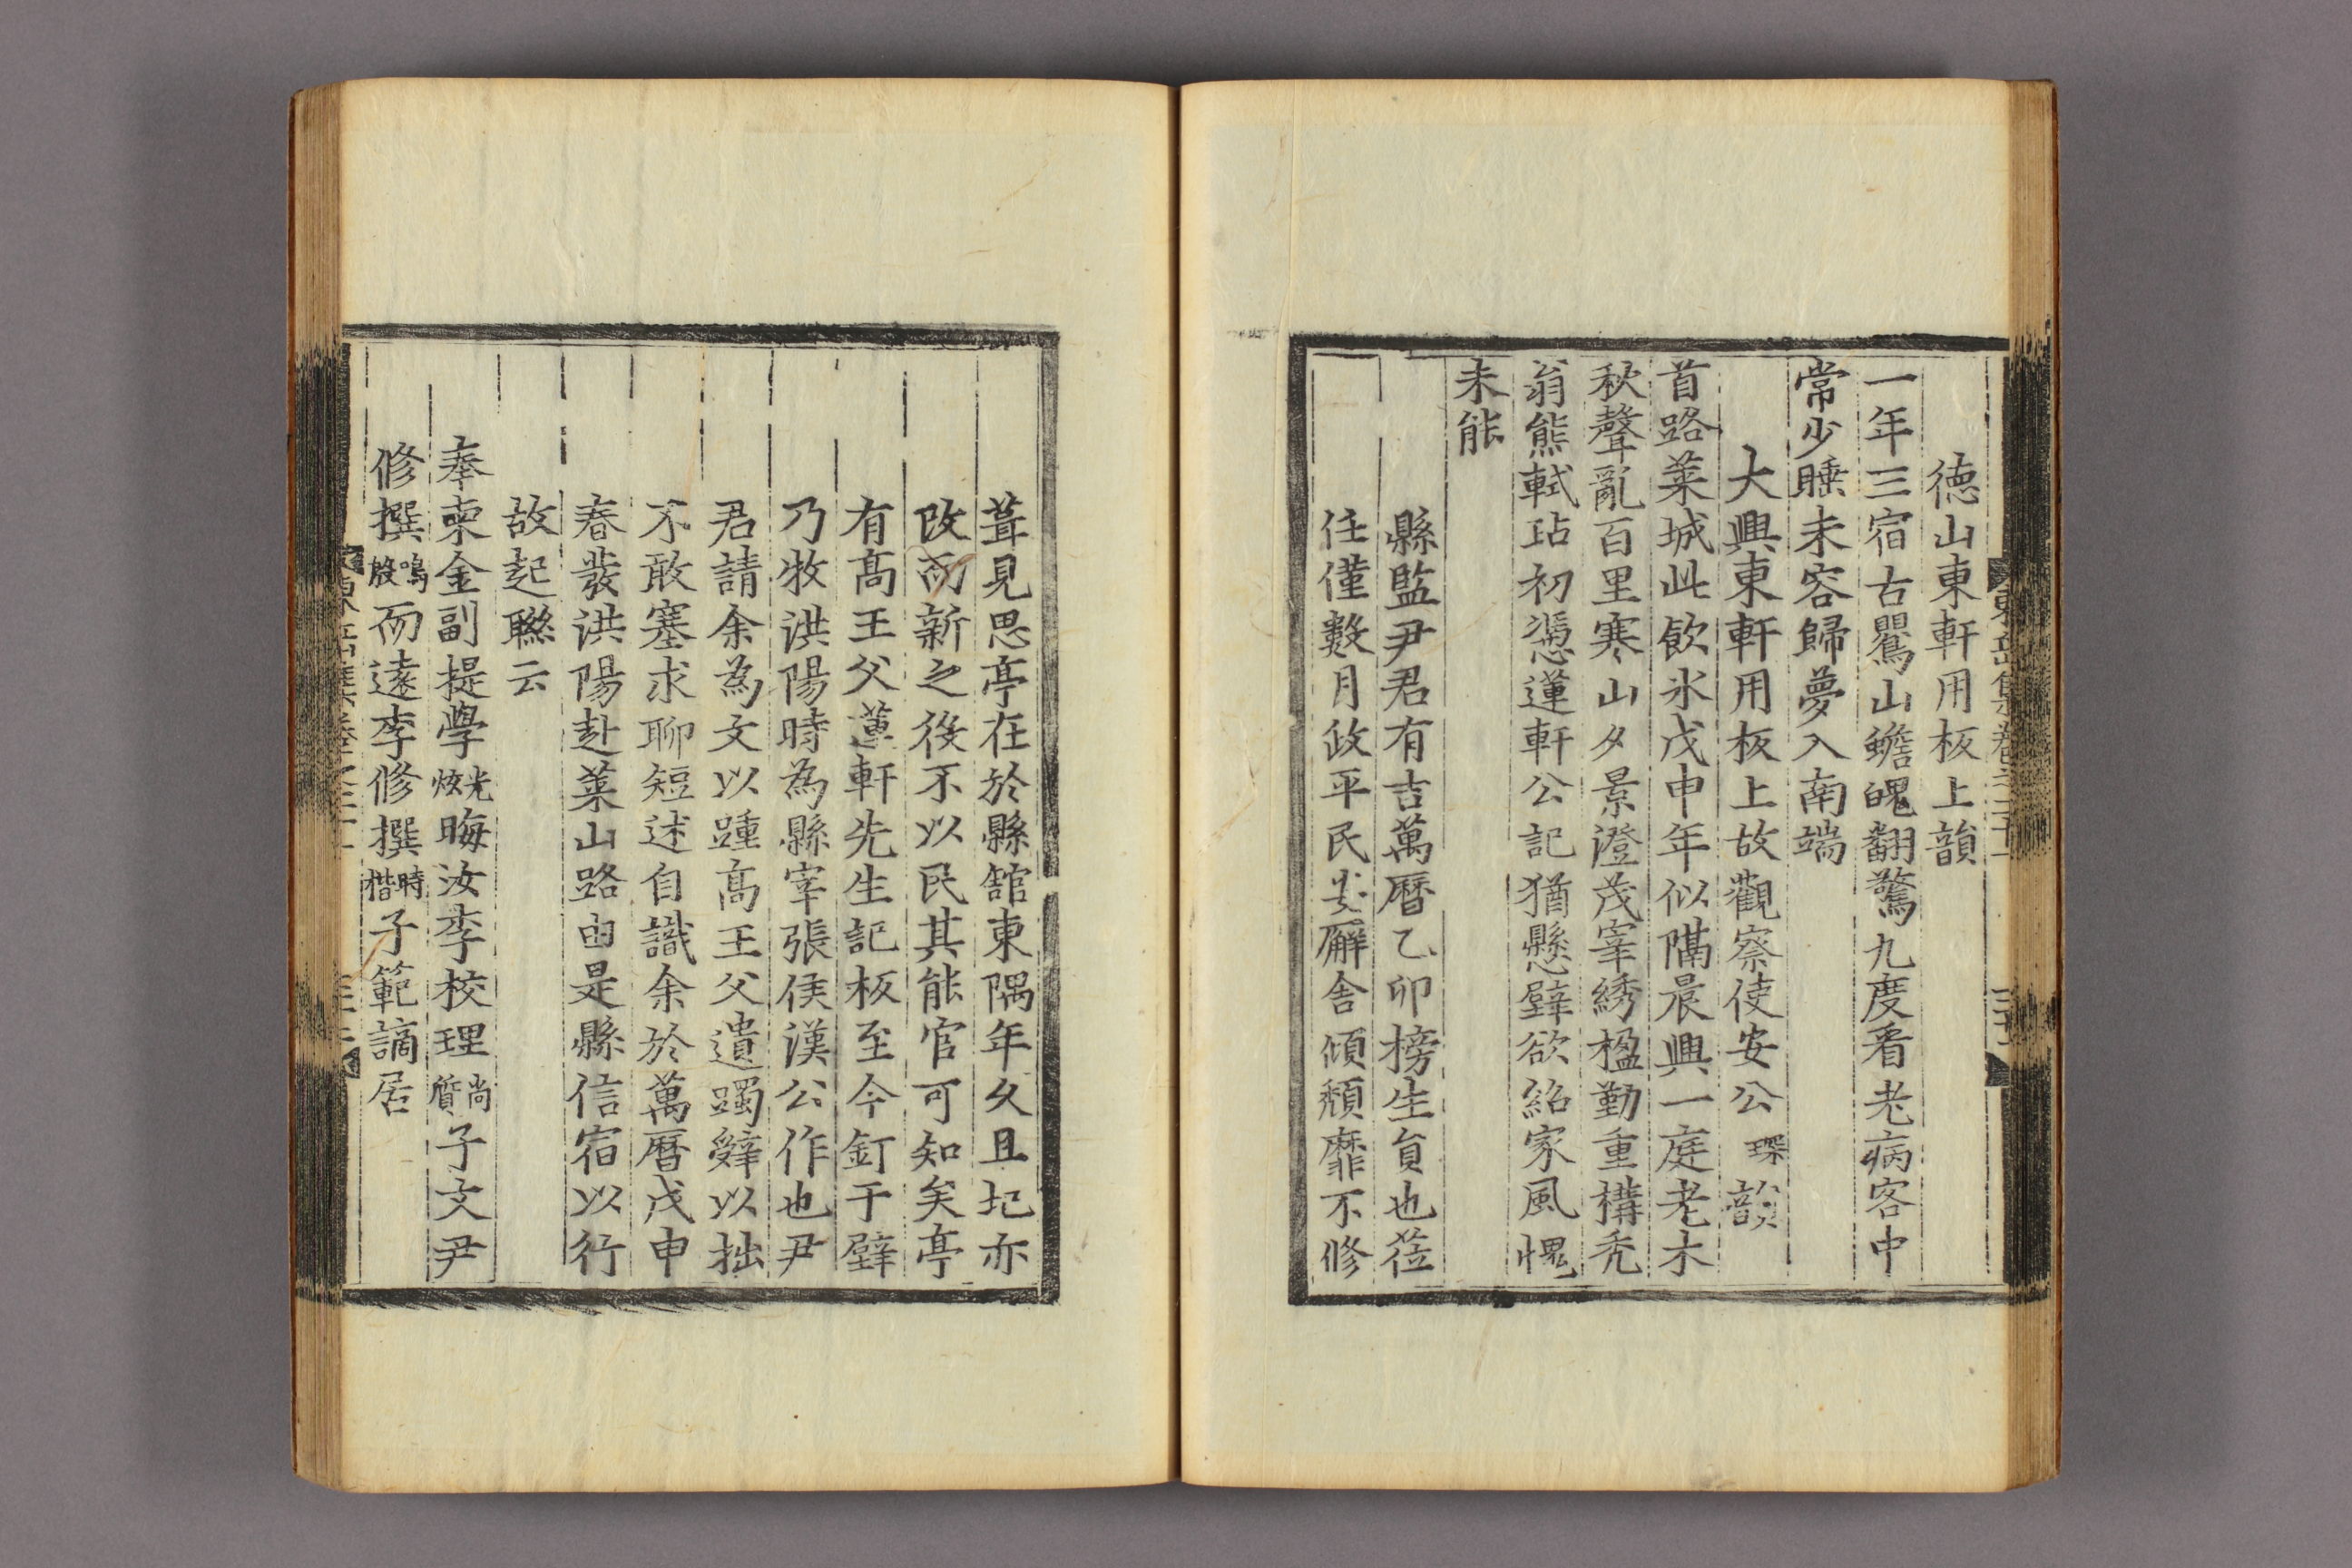 德山東軒用板上韻
一年三宿古鸎山蟾魄翻驚九度看老病客中
常少睡未容歸夢入南端
大興東軒用板上故觀察使安公琛韻
首路萊城此飮氷戊申年似隔晨興一庭老木
秋聲亂百里寒山夕景澄茂宰綉楹勤重構禿
翁熊軾玷初憑蓮軒公記猶懸壁欲紹家風愧
未能
縣監尹君有吉萬曆乙卯榜生員也莅
任僅數月政平民廨舍傾頹靡不修
葺見思亭在於縣舘東隅年久且圮亦
改而新之役不以民其能官可知矣亭
有高王父蓮軒先生記板至今釘于壁
乃牧洪陽時為縣宰張侯漢公作也尹
君請余為文以踵高王父遺躅辭以拙
不敢塞求聊短述自識余於萬曆戊申
春發洪陽赴萊山路由是縣信宿以行
故起聯云
奉柬金副提學光炫晦汝李校理尚質子文尹
修撰鳴殷而遠李修撰時楷子範謫居